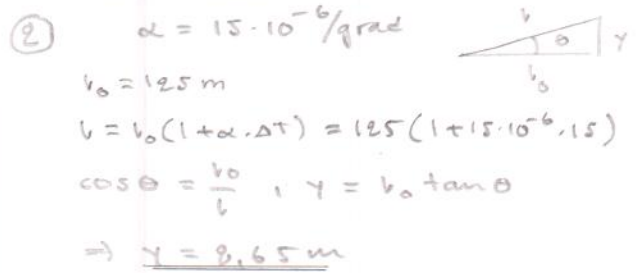 ② α = 15·10⁻⁶/grad
l θ y
l₀
l₀ = 125 m
l = l₀(1+α·ΔT) = 125(1+15·10⁻⁶·15)
cos θ = l₀/l , y = l₀ tan θ
⇒ y = 2,65 m